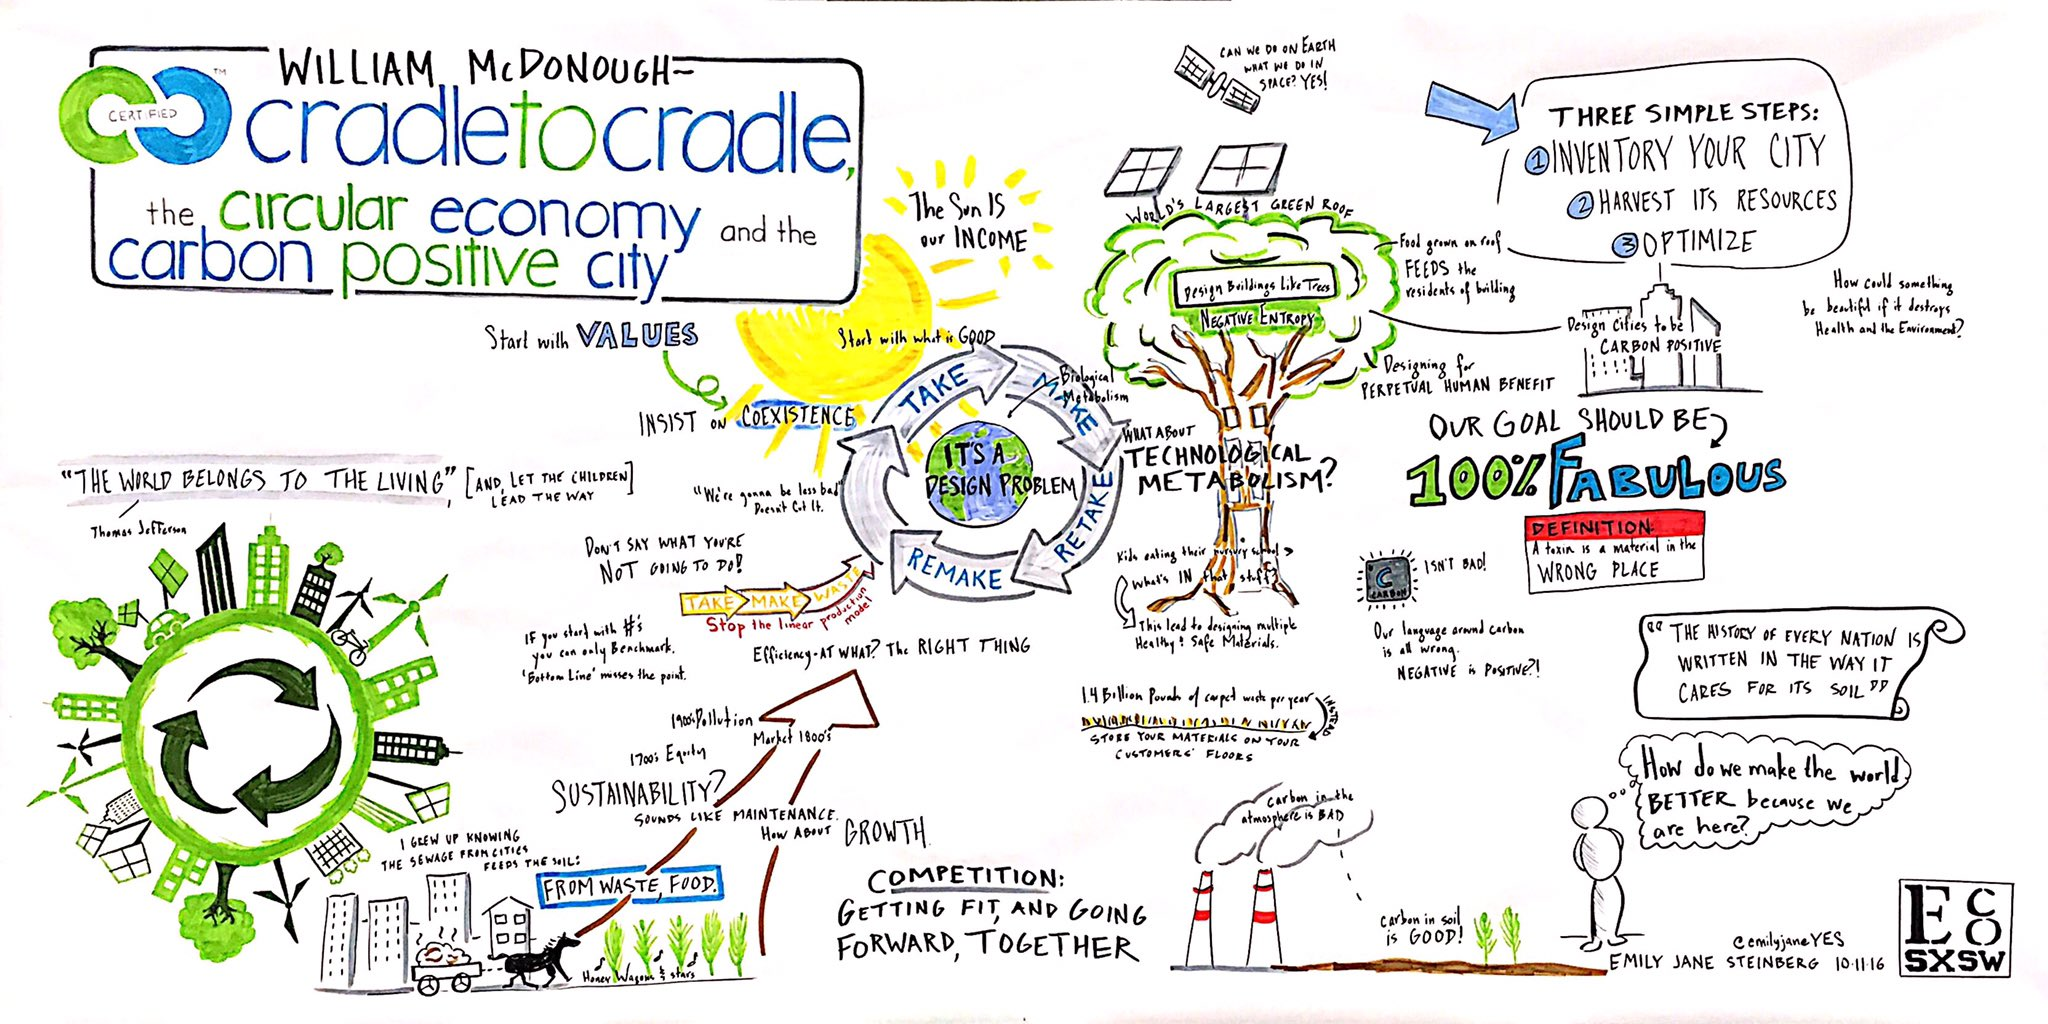 WILLIAM McDONOUGH~
CERTIFIED
TM
cradletocradle,
the circular economy and the
carbon positive city
The Sun IS
our INCOME
CAN WE DO ON EARTH
WHAT WE DO IN
SPACE? YES!
THREE SIMPLE STEPS:
1 INVENTORY YOUR CITY
2 HARVEST ITS RESOURCES
3 OPTIMIZE
WORLD'S LARGEST GREEN ROOF
Food grown on roof
FEEDS the
residents of building
Design Buildings Like Trees
NEGATIVE ENTROPY
Designing for
PERPETUAL HUMAN BENEFIT
Design Cities to be
CARBON POSITIVE
How could something
be beautiful if it destroys
Health and the Environment?
Start with VALUES
INSIST ON COEXISTENCE
Start with what is GOOD
TAKE
MAKE
RETAKE
REMAKE
Biological
Metabolism
IT'S A
DESIGN PROBLEM
WHAT ABOUT
TECHNOLOGICAL
METABOLISM?
OUR GOAL SHOULD BE
100% FABULOUS
DEFINITION:
A toxin is a material in the
WRONG PLACE
"THE WORLD BELONGS TO THE LIVING," [AND, LET THE CHILDREN
LEAD THE WAY]
Thomas Jefferson
"We're gonna be less bad"
Doesn't Cut It.
DON'T SAY WHAT YOU'RE
NOT GOING TO DO!
TAKE MAKE WASTE
Stop the linear production
model
IF you start with #'s
you can only Benchmark.
'Bottom Line' misses the point.
Efficiency-AT WHAT? The RIGHT THING
Kids eating their nursery school >
What's IN that stuff?
This lead to designing multiple
Healthy & Safe Materials.
C
CARBON
ISN'T BAD!
Our language around carbon
is all wrong.
NEGATIVE is POSITIVE?!
"THE HISTORY OF EVERY NATION IS
WRITTEN IN THE WAY IT
CARES FOR ITS SOIL"
1.4 Billion Pounds of carpet waste per year
INSTEAD
STORE YOUR MATERIALS ON YOUR
CUSTOMERS' FLOORS
1900's Pollution
Market 1800's
1700's Equity
SUSTAINABILITY?
SOUNDS LIKE MAINTENANCE.
HOW ABOUT GROWTH.
I GREW UP KNOWING
THE SEWAGE FROM CITIES
FEEDS THE SOIL:
FROM WASTE, FOOD.
Honey Wagons & stars
COMPETITION:
GETTING FIT, AND GOING
FORWARD, TOGETHER
carbon in the
atmosphere is BAD
carbon in soil
is GOOD!
How do we make the world
BETTER because we
are here?
@emilyjaneYES
EMILY JANE STEINBERG 10·11·16
ECO
SXSW